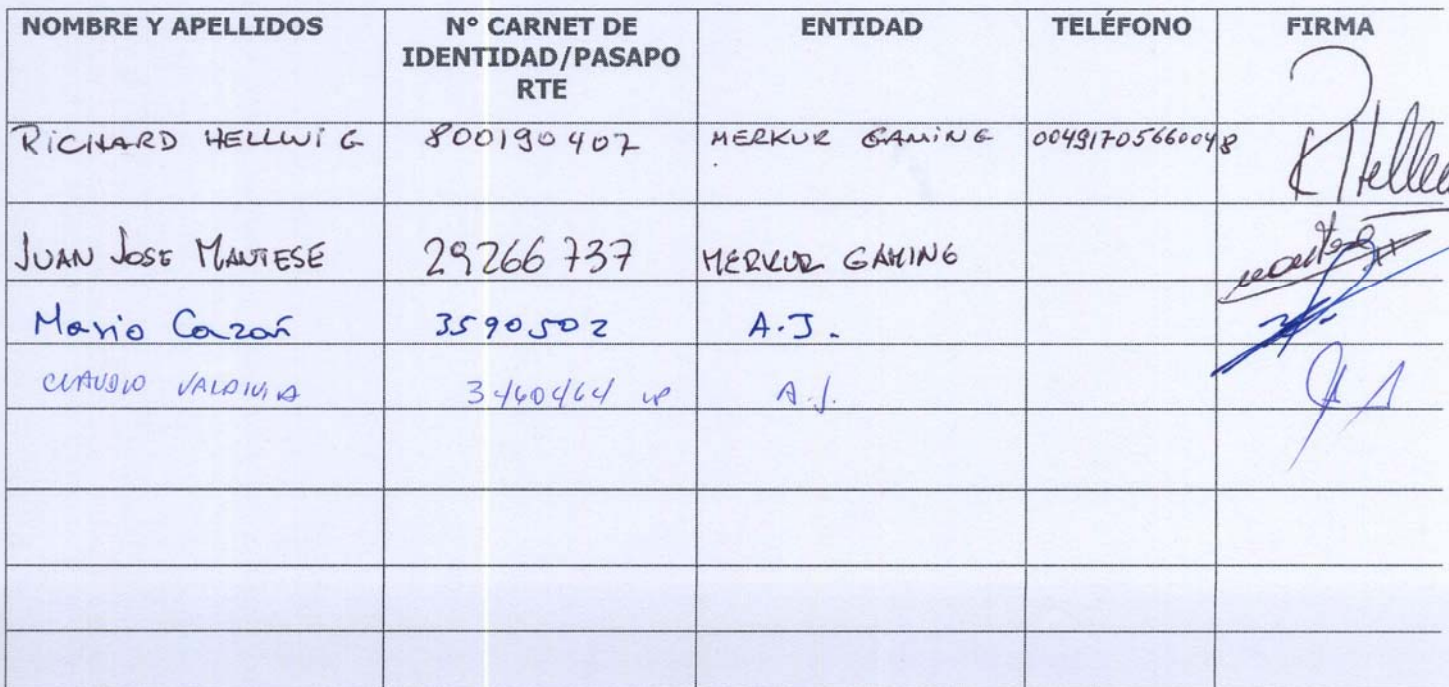 NOMBRE Y APELLIDOS N° CARNET DE IDENTIDAD/PASAPO RTE ENTIDAD TELÉFONO FIRMA
RICHARD HELLWIG 800190407 MERKUR GAMING 00491705660048
JUAN JOSE MANTESE 29266737 MERKUR GAMING
Mario Cazañ 3590502 A.J.
CLAUDIO VALDIVIA A.J.